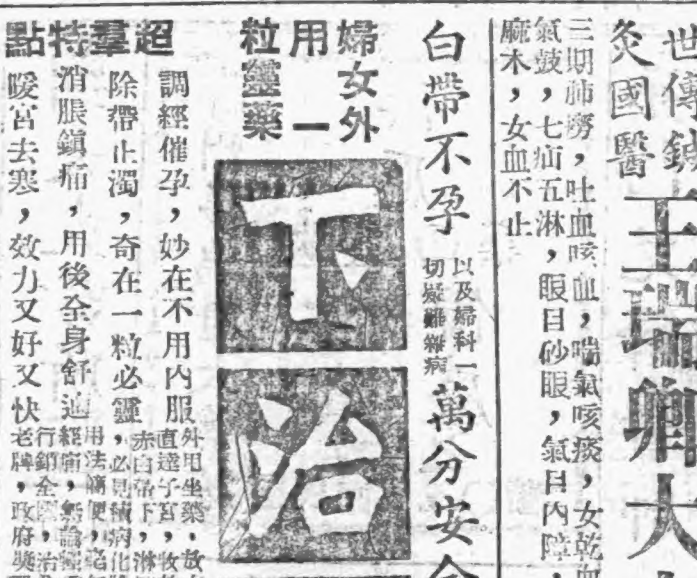 世傳鍼
灸國醫
王瑞卿大
三期肺癆，吐血咳血，喘氣咳痰，女乾血
氣鼓，七疝五淋，眼目砂眼，氣目內障，
麻木，女血不止
白帶不孕
以及婦科一
切疑難雜病
萬分安全
婦女外
用一
粒靈藥
下治
超羣特點
調經催孕，妙在不用內服
除帶止濁，奇在一粒必靈
消脹鎮痛，用後全身舒適
暖宮去寒，效力又好又快
外用坐藥，放
直達子宮，收
赤白帶下，淋
，必見積病化
用法簡便，
經痛，無論經
行銷全國，治
老牌，政府獎